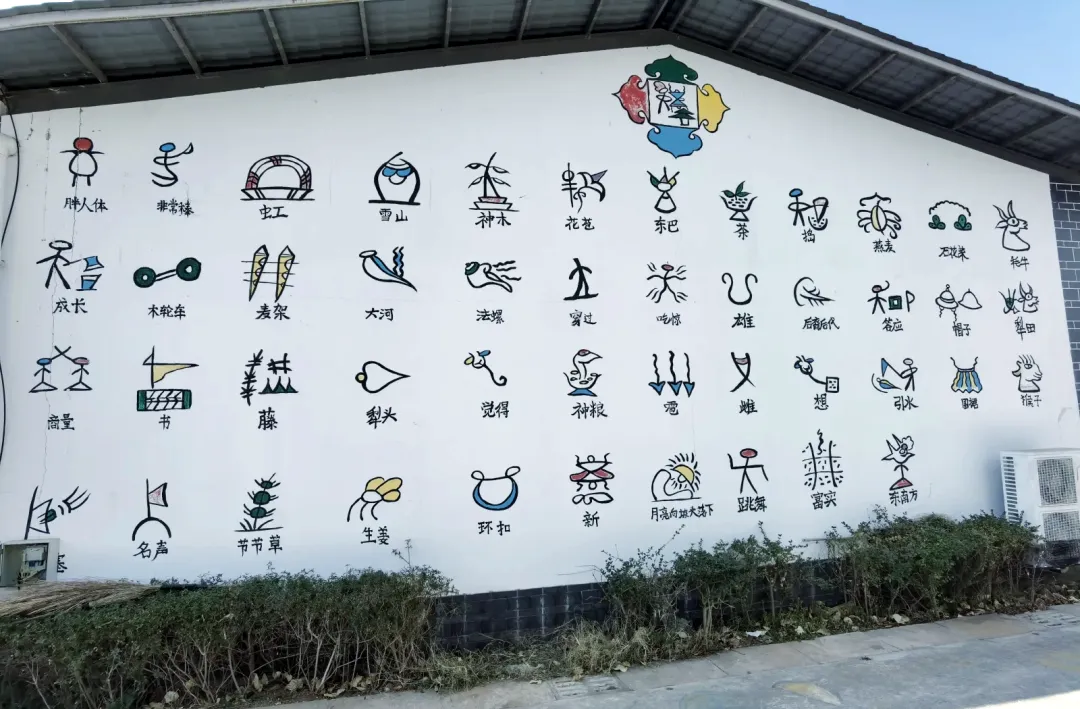 胖人体 非常棒 虹 雪山 神木 花苞 东巴 茶 捣 燕麦 石花菜 牦牛
成长 木轮车 麦架 大河 法螺 穿过 吃惊 雄 后裔后代 答应 帽子 犁田
商量 书 藤 犁头 觉得 神粮 雹 雌 想 引水 围裙 猴子
名声 节节草 生姜 环扣 新 月亮向 落下 跳舞 富实 东南方